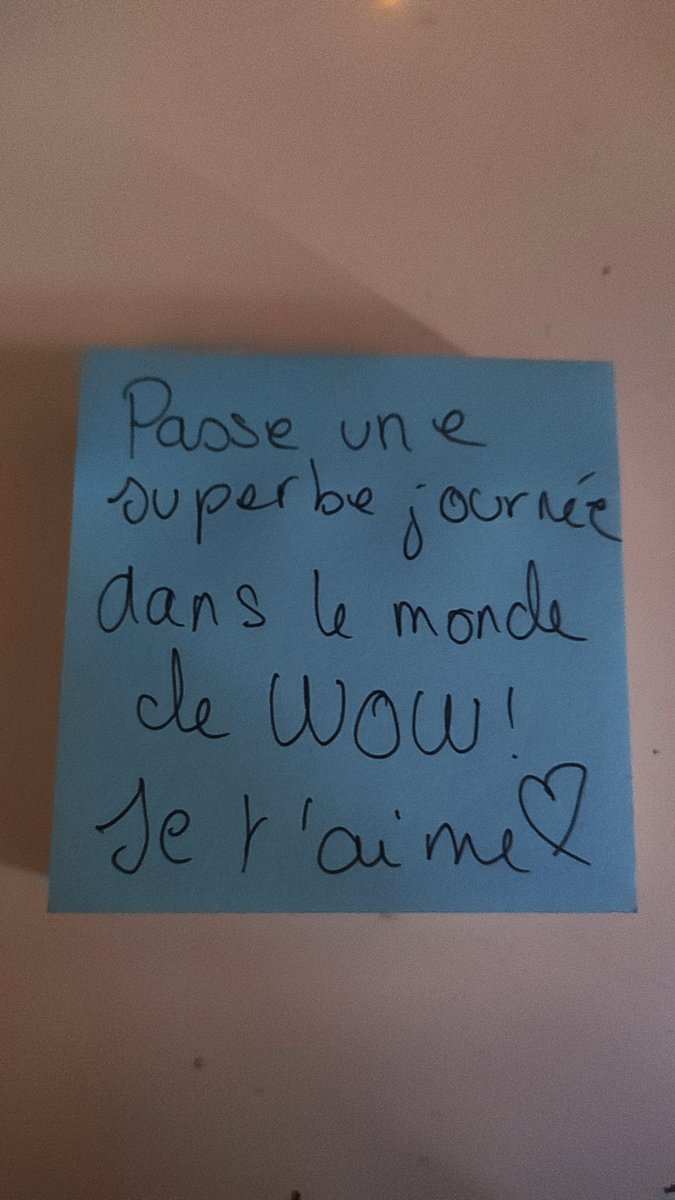 Passe une
superbe journée
dans le monde
de WOW!
Je t'aime♡